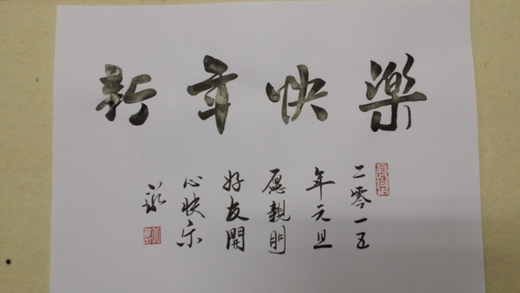 新年快樂
二零一五
年元旦
愿親朋
好友開
心快乐